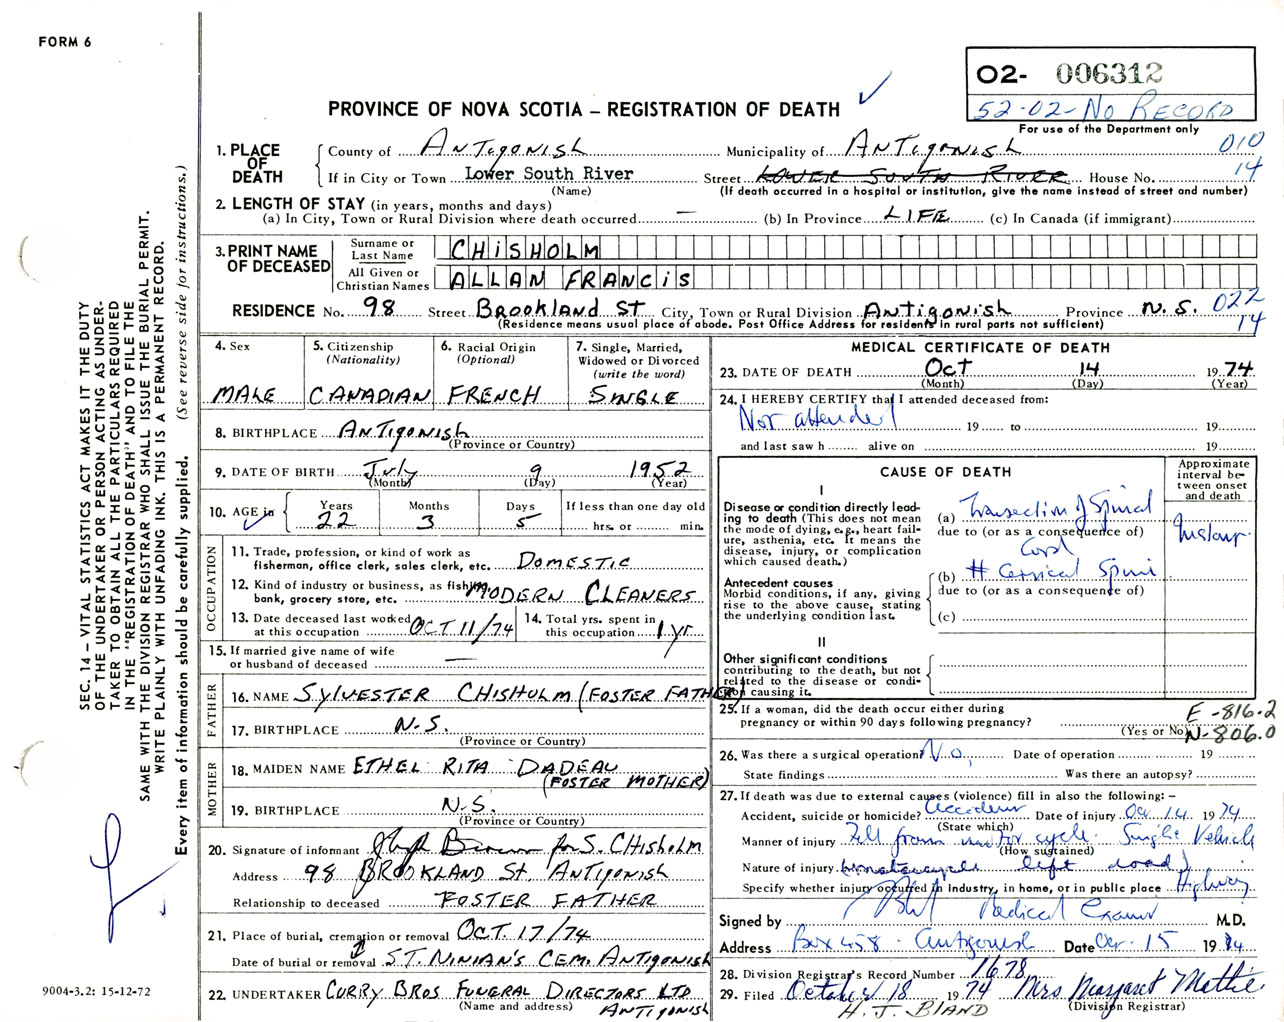 FORM 6
O2- 006312
52-02-No RECORD
For use of the Department only
PROVINCE OF NOVA SCOTIA – REGISTRATION OF DEATH ✓
010
14
1. PLACE OF DEATH
County of Antigonish Municipality of Antigonish
If in City or Town Lower South River Street LOWER SOUTH RIVER House No.
(Name) (If death occurred in a hospital or institution, give the name instead of street and number)
2. LENGTH OF STAY (in years, months and days)
(a) In City, Town or Rural Division where death occurred — (b) In Province LIFE (c) In Canada (if immigrant)
3. PRINT NAME OF DECEASED
Surname or Last Name CHISHOLM
All Given or Christian Names ALLAN FRANCIS
022
14
RESIDENCE No. 98 Street BROOKLAND ST City, Town or Rural Division Antigonish Province N.S.
(Residence means usual place of abode. Post Office Address for residents in rural parts not sufficient)
4. Sex
MALE
5. Citizenship
(Nationality)
CANADIAN
6. Racial Origin
(Optional)
FRENCH
7. Single, Married,
Widowed or Divorced
(write the word)
SINGLE
8. BIRTHPLACE ANTIGONISH
(Province or Country)
9. DATE OF BIRTH July 9 1952
(Month) (Day) (Year)
10. AGE in ✓
Years Months Days If less than one day old
22 3 5 hrs. or min.
OCCUPATION
11. Trade, profession, or kind of work as
fisherman, office clerk, sales clerk, etc. DOMESTIC
12. Kind of industry or business, as fishing,
bank, grocery store, etc. MODERN CLEANERS
13. Date deceased last worked
at this occupation OCT 11/74
14. Total yrs. spent in
this occupation 1 yr
15. If married give name of wife
or husband of deceased —
FATHER
16. NAME SYLVESTER CHISHOLM (FOSTER FATHER)
17. BIRTHPLACE N.S.
(Province or Country)
MOTHER
18. MAIDEN NAME ETHEL RITA DADEAU
(FOSTER MOTHER)
19. BIRTHPLACE N.S.
(Province or Country)
20. Signature of informant Hugh Brown for S. CHISHOLM
Address 98 BROOKLAND St. ANTIGONISH
Relationship to deceased FOSTER FATHER
21. Place of burial, cremation or removal OCT. 17/74
Date of burial or removal ST. NINIAN'S CEM. ANTIGONISH
22. UNDERTAKER CURRY BROS FUNERAL DIRECTORS LTD
(Name and address) ANTIGONISH
MEDICAL CERTIFICATE OF DEATH
23. DATE OF DEATH Oct 14 1974
(Month) (Day) (Year)
24. I HEREBY CERTIFY that I attended deceased from:
Not attended 19 to 19
and last saw h alive on 19
CAUSE OF DEATH
Approximate interval between onset and death
I
Disease or condition directly leading to death (This does not mean the mode of dying, e.g., heart failure, asthenia, etc. It means the disease, injury, or complication which caused death.)
(a) Transection of Spinal
due to (or as a consequence of)
Cord
Instant.
Antecedent causes
Morbid conditions, if any, giving rise to the above cause, stating the underlying condition last.
(b) # Cervical Spine
due to (or as a consequence of)
(c)
II
Other significant conditions
contributing to the death, but not related to the disease or condition causing it.
25. If a woman, did the death occur either during
pregnancy or within 90 days following pregnancy?
(Yes or No)
E-816.2
N-806.0
26. Was there a surgical operation? No, Date of operation 19
State findings Was there an autopsy?
27. If death was due to external causes (violence) fill in also the following: –
Accident, suicide or homicide? Accident Date of injury Oct 14 1974
(State which)
Manner of injury Fell from motor cycle. Single Vehicle
(How sustained)
Nature of injury (motorcycle left road)
Specify whether injury occurred in industry, in home, or in public place Highway
Signed by Medical Examiner M.D.
Address Box 458 - Antigonish Date Oct. 15 1974
28. Division Registrar's Record Number 1678
29. Filed October 18 1974 Mrs Margaret Mattie
(Division Registrar)
H. J. BLAND
SEC. 14 – VITAL STATISTICS ACT MAKES IT THE DUTY
OF THE UNDERTAKER OR PERSON ACTING AS UNDER-
TAKER TO OBTAIN ALL THE PARTICULARS REQUIRED
IN THE "REGISTRATION OF DEATH" AND TO FILE THE
SAME WITH THE DIVISION REGISTRAR WHO SHALL ISSUE THE BURIAL PERMIT.
WRITE PLAINLY WITH UNFADING INK. THIS IS A PERMANENT RECORD.
Every item of information should be carefully supplied. (See reverse side for instructions.)
9004-3.2: 15-12-72